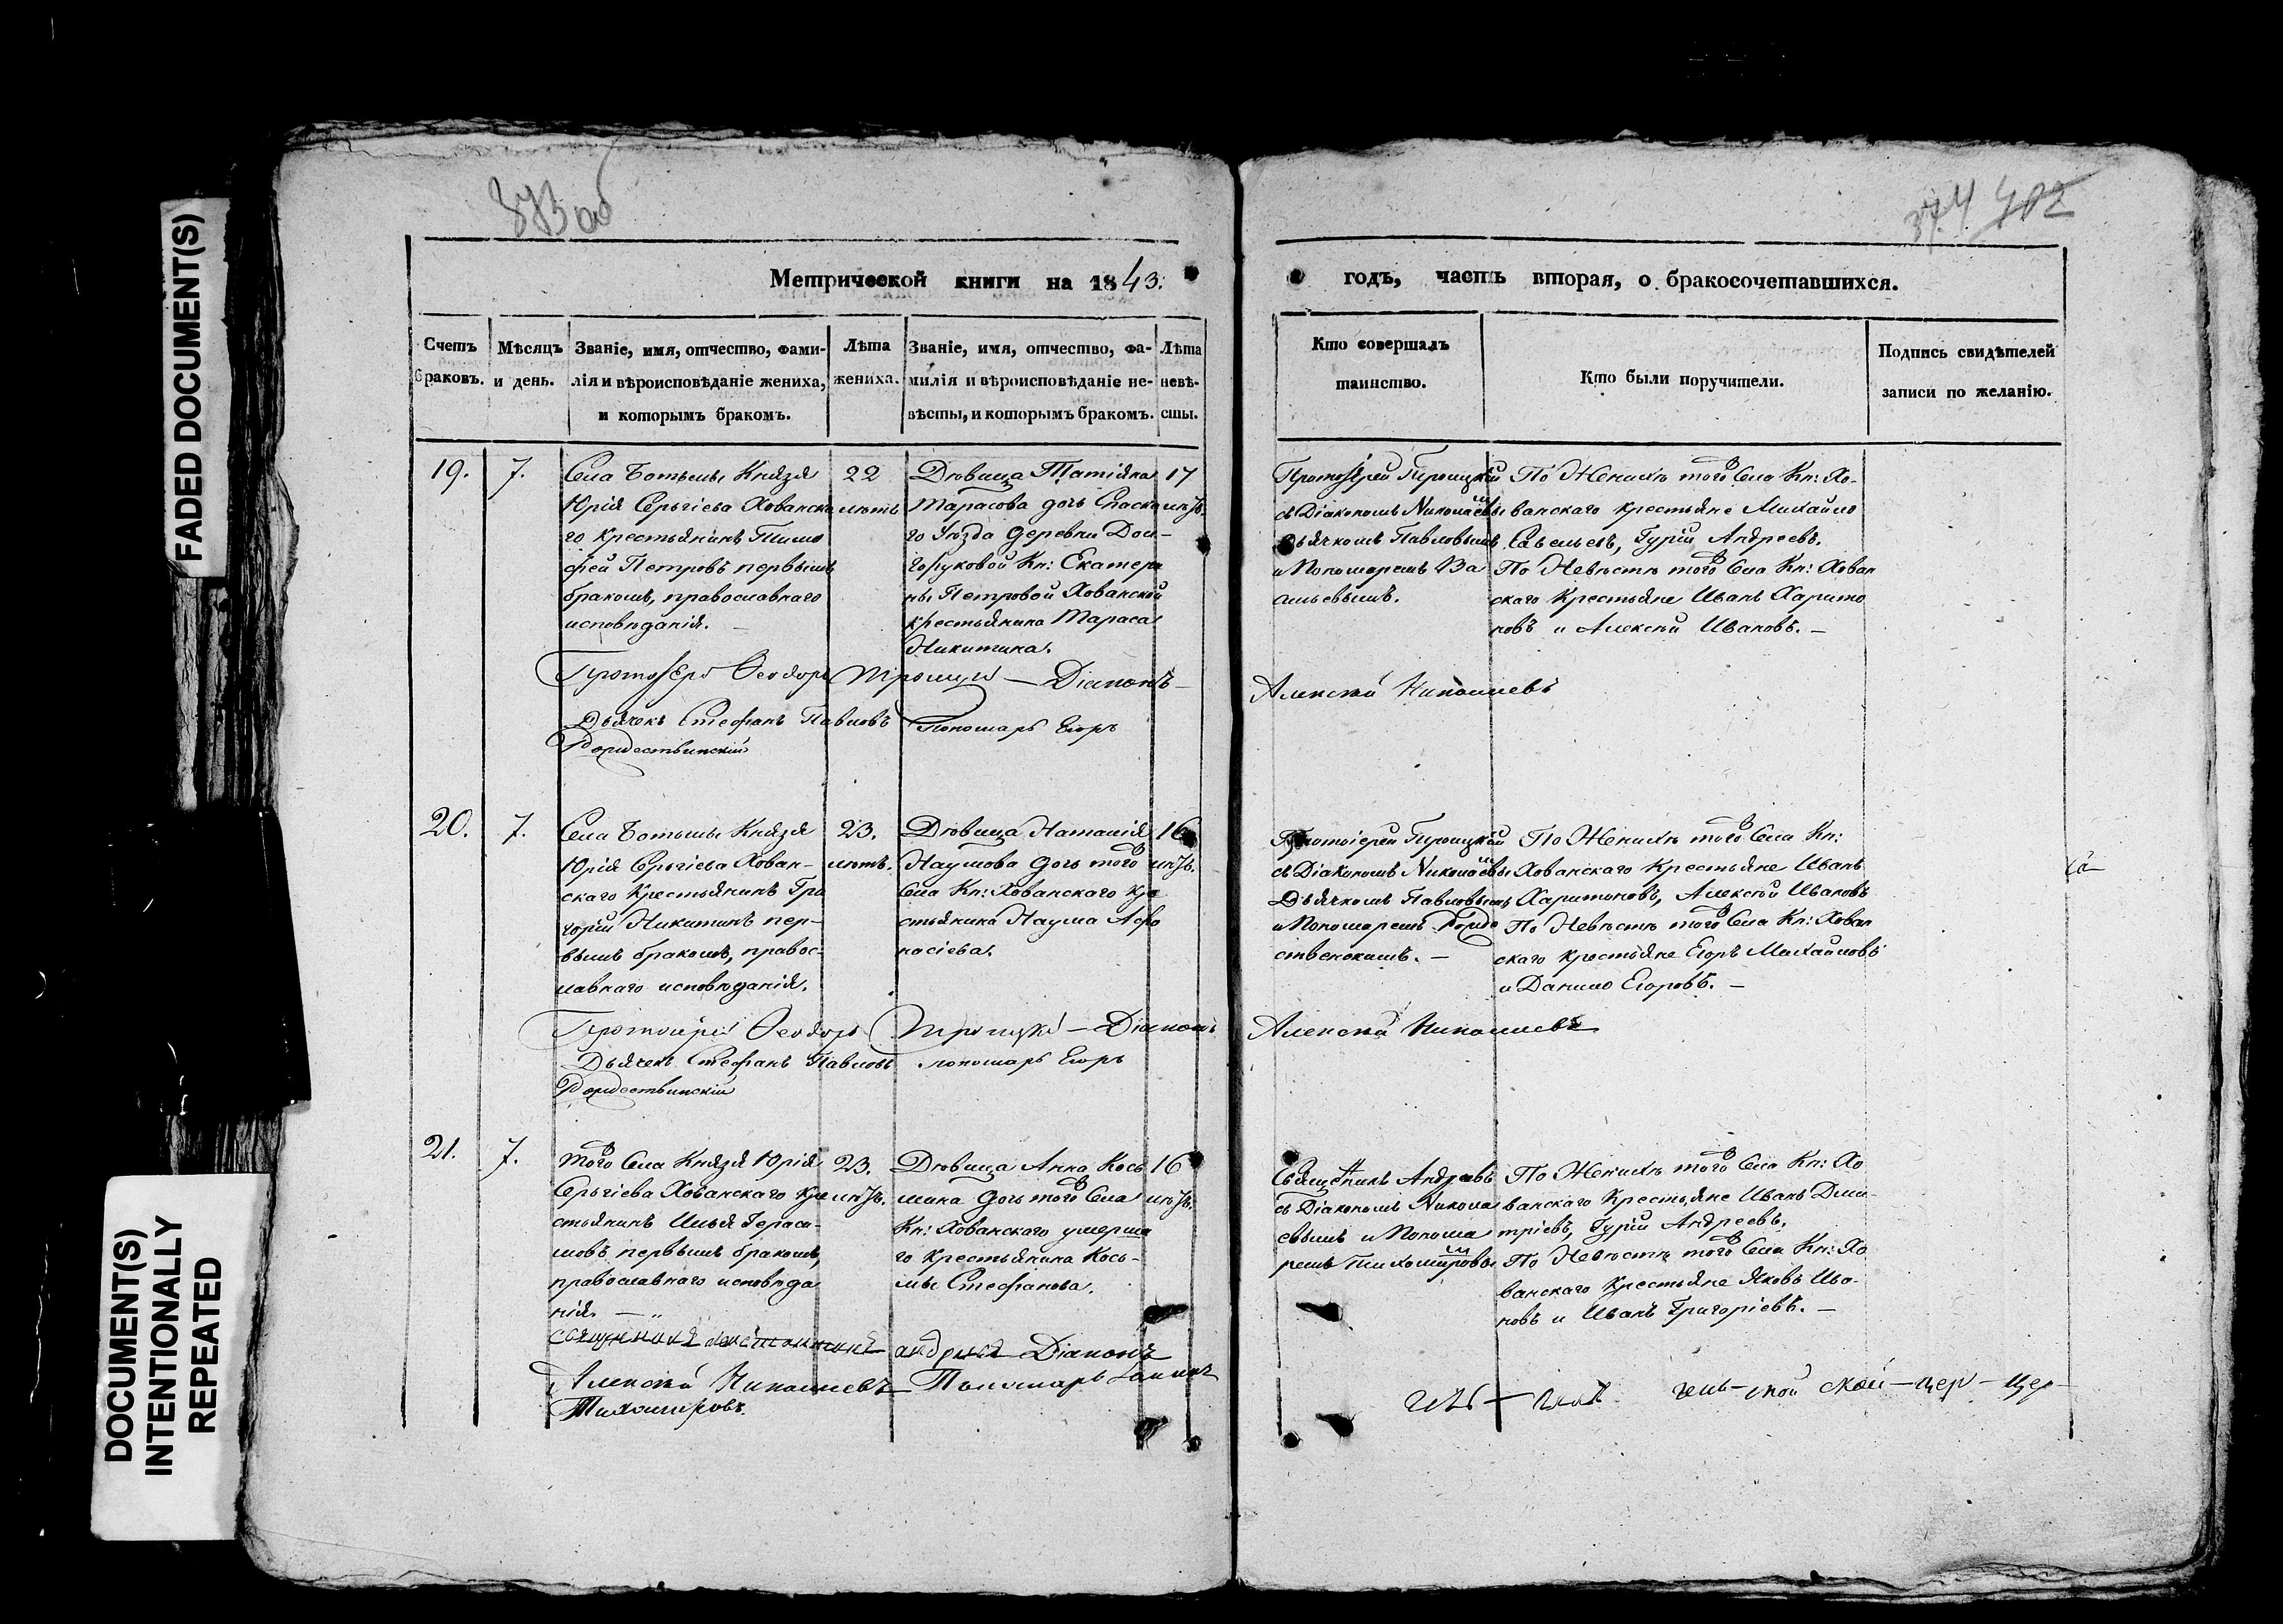 FADED DOCUMENT(S)
DOCUMENT(S)
INTENTIONALLY
REPEATED
373 об
374 402
Метрической книги на 1843.
годъ, часть вторая, о бракосочетавшихся.
Счетъ браковъ.
Мѣсяцъ и день.
Званіе, имя, отчество, фами-
лія и вѣроисповѣданіе жениха,
и которымъ бракомъ.
Лѣта
жениха.
Званіе, имя, отчество, фа-
милія и вѣроисповѣданіе не-
вѣсты, и которымъ бракомъ.
Лѣта
невѣ-
сты.
Кто совершалъ
таинство.
Кто были поручители.
Подпись свидѣтелей
записи по желанію.
19.
7.
Села Ботьмы Князя
Юрія Сергіева Хованска
го Крестьянинъ Тимо
фей Петровъ первымъ
бракомъ, православнаго
исповѣданія.
22
лѣтъ
Дѣвица Татіяна
Тарасова дочь Спаска
го Уѣзда деревни Дол-
горуковой Кн: Екатери
ны Петровой Хованской
крестьянина Тараса
Никитина.
17
лѣтъ.
Протоіерей Троицкій
съ Діакономъ Николаевы
Дьячкомъ Павловымъ
и Пономаремъ Ва
сильевымъ.
По Женихѣ того Села Кн: Хо-
ванскаго крестьяне Михайло
Савельевъ, Гурій Андреевъ.
По Невѣстѣ того Села Кн: Хован
скаго Крестьяне Иванъ Харито
новъ и Алексѣй Ивановъ. —
Протоіерей Ѳеодоръ Троицкій — Діаконъ —
Алексѣй Николаевъ
Дьячекъ Стефанъ Павловъ Пономарь Егоръ
Рождественскій
20.
7.
Села Ботьмы Князя
Юрія Сергіева Хован-
скаго Крестьянинъ Гри
горій Никитинъ пер-
вымъ бракомъ, правос-
лавнаго исповѣданія.
23.
лѣтъ.
Дѣвица Наталія
Наумова дочь того
Села Кн: Хованскаго кре
стьянина Наума Афо
насіева.
16
лѣтъ.
Протоіерей Троицкій
съ Діакономъ Николаевы
Дьячкомъ Павловымъ
и Пономаремъ Рожде
ственскимъ. —
По Женихѣ того Села Кн:
Хованскаго Крестьяне Иванъ
Харитоновъ, Алексѣй Ивановъ
По Невѣстѣ того Села Кн: Хован
скаго крестьяне Егоръ Михайловъ
и Данило Егоровъ. —
Протоіерей Ѳеодоръ Троицкій — Діаконъ
Алексѣй Николаевъ
Дьячекъ Стефанъ Павловъ пономарь Егоръ
Рождественскій
21.
7.
того Села Князя Юрія
Сергіева Хованскаго Кре
стьянинъ Илья Гераси-
мовъ первымъ бракомъ,
православнаго исповѣда
нія. —
23.
лѣтъ.
Дѣвица Анна Кось
мина дочь того Села
Кн: Хованскаго умерша
го Крестьянина Кось-
мы Стефанова.
16
лѣтъ.
Священникъ Андреевъ
съ Діакономъ Никола
евымъ и Понома
ремъ Тихомировы
По Женихѣ того Села Кн: Хо
ванскаго Крестьяне Иванъ Дми-
тріевъ, Гурій Андреевъ.
По Невѣстѣ того Села Кн: Хо
ванскаго Крестьяне Яковъ Ива-
новъ и Иванъ Григоріевъ. —
священникъ андреевъ Діаконъ
Алексѣй Николаевъ Пономарь
Тихомировъ.
ской — цер — цер